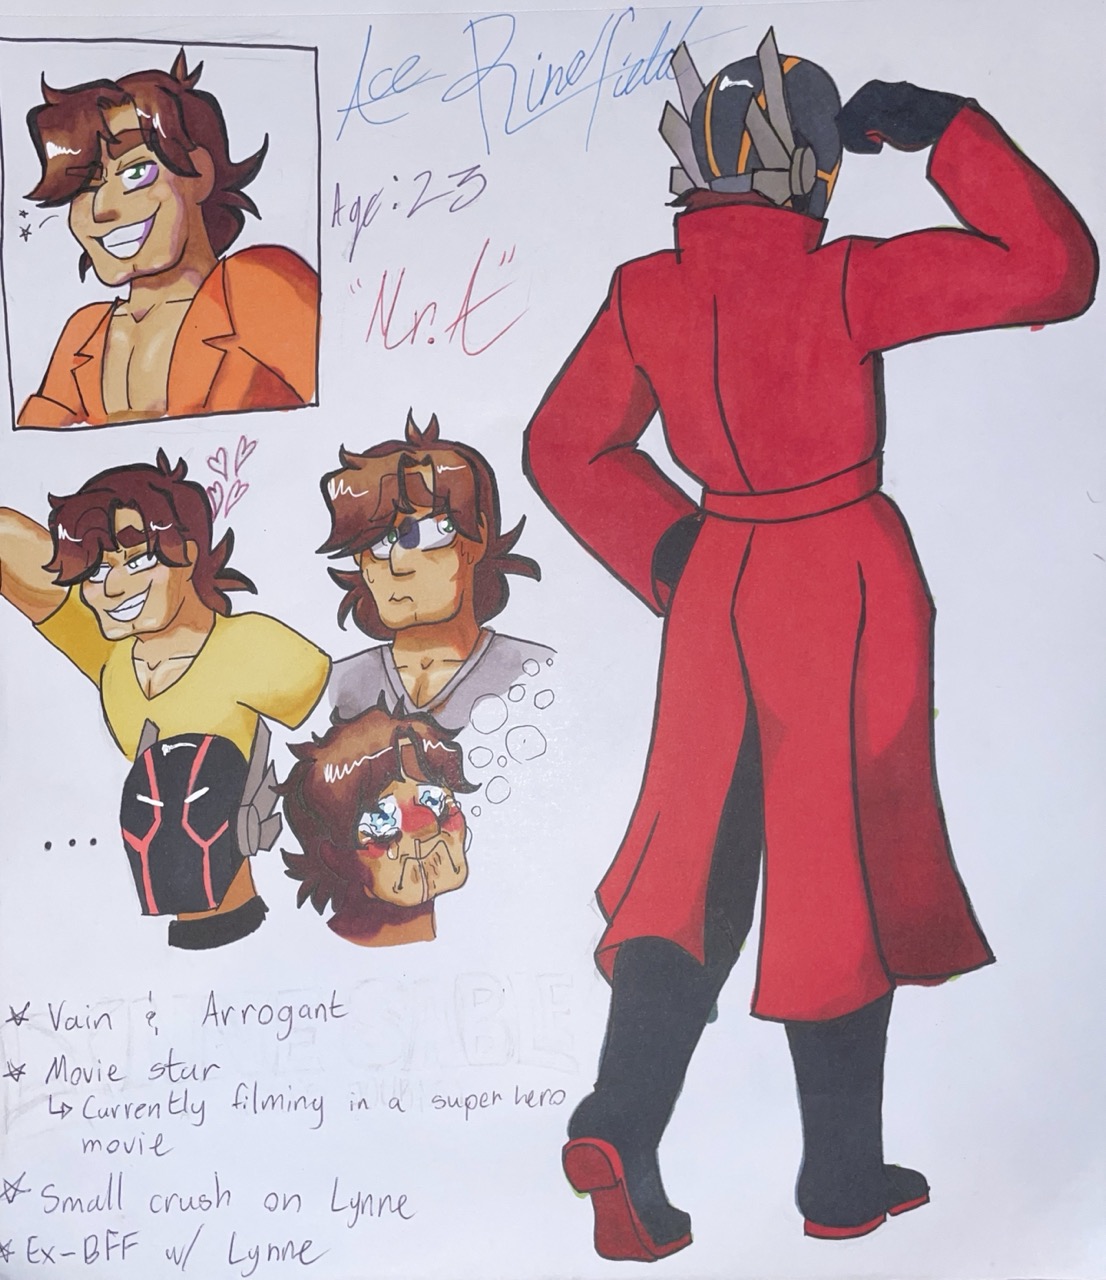 Ace Rinefield
Age: 23
"Mr. A"
...
Vain & Arrogant
Movie star
↳ Currently filming in a super hero
movie
Small crush on Lynne
Ex-BFF w/ Lynne